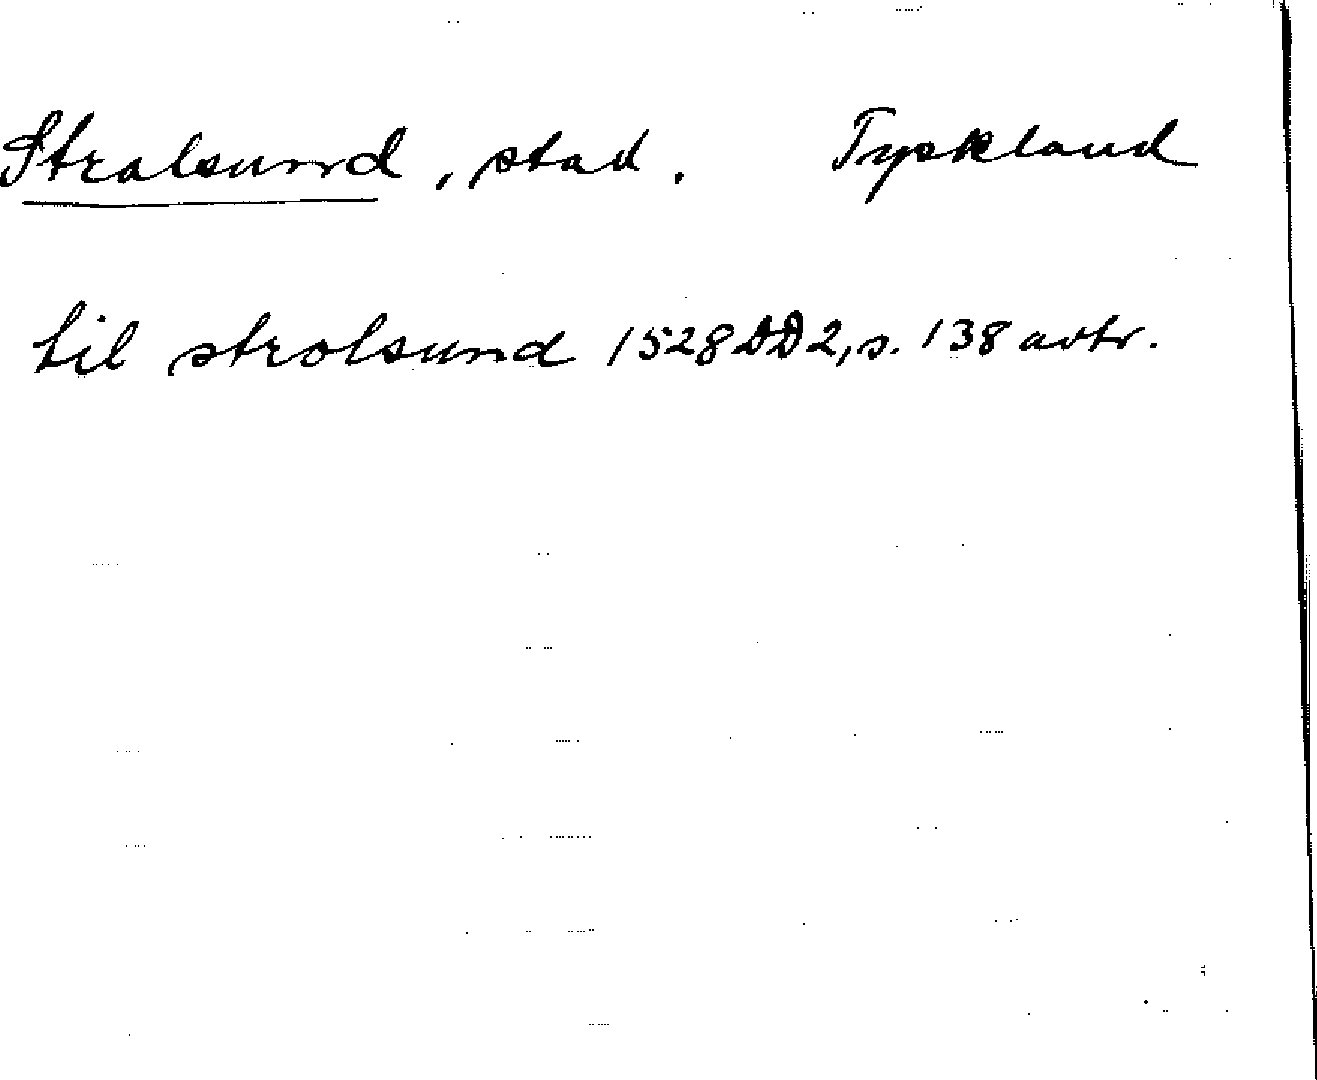 Stralsund, stad. Tyskland
til strolsund 1528 DD2, s. 138 avtr.